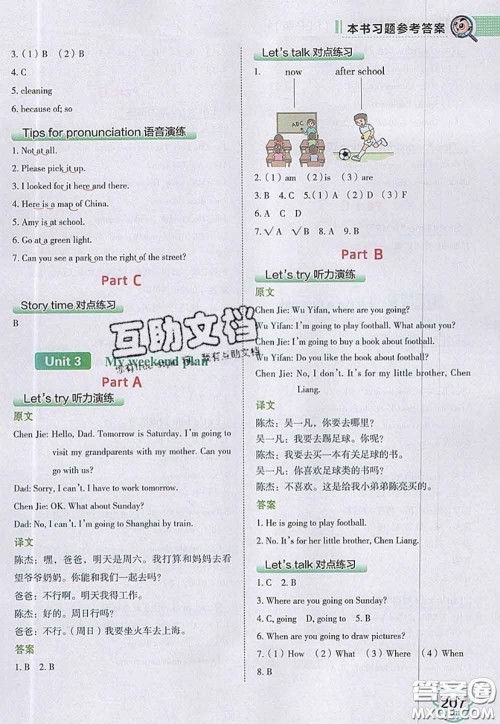 本书习题参考答案
3. (1) B (2) B
4. C
5. cleaning
6. because of; so
Tips for pronunciation 语音演练
1. Not at all.
2. Please pick it up.
3. I looked for it here and there.
4. Here is a map of China.
5. Amy is at school.
6. Go at a green light.
7. Can you see a park on the right of the street?
Part C
Story time 对点练习
B
Unit 3 My weekend plan
Part A
Let's try 听力演练
原文
Chen Jie: Hello, Dad. Tomorrow is Saturday. I'm going to
visit my grandparents with my mother. Can you
go with us?
Dad: Sorry, I can't. I have to work tomorrow.
Chen Jie: OK. What about Sunday?
Dad: No, I can't. I'm going to Shanghai by train.
译文
陈杰：嘿，爸爸，明天是周六。我打算和妈妈去看
望爷爷奶奶。你能和我们一起去吗？
爸爸：不行啊。我明天得工作。
陈杰：好吧。那周日呢？
爸爸：不行。（周日）我要坐火车去上海。
答案
1. B 2. B
Let's talk 对点练习
1. now after school
ABC
2. (1) am (2) is (3) are
3. B 4. C 5. (1) A (2) D (3) F
6. A C D
7. √A √B √C
Part B
Let's try 听力演练
原文
Chen Jie: Wu Yifan, where are you going?
Wu Yifan: I'm going to play football. What about you?
Chen Jie: I'm going to buy a book about football.
Wu Yifan: Do you like the book about football?
Chen Jie: No, I don't. It's for my little brother, Chen
Liang.
译文
陈杰：吴一凡，你要去哪里？
吴一凡：我要去踢足球。你呢？
陈杰：我要去买一本有关足球的书。
吴一凡：你喜欢足球类的书吗？
陈杰：不喜欢。这是给我小弟弟陈亮买的。
答案
1. He is going to play football.
2. No. It's for her little brother, Chen Liang.
Let's talk 对点练习
1. C 2. B
3. Where are you going on Sunday?
4. C, going D, going to
5. C
6. When are you going to draw pictures?
7. (1) How (2) What (3) Where (4) When
8. B
互助文档
207
答案圈
MXQE.COM